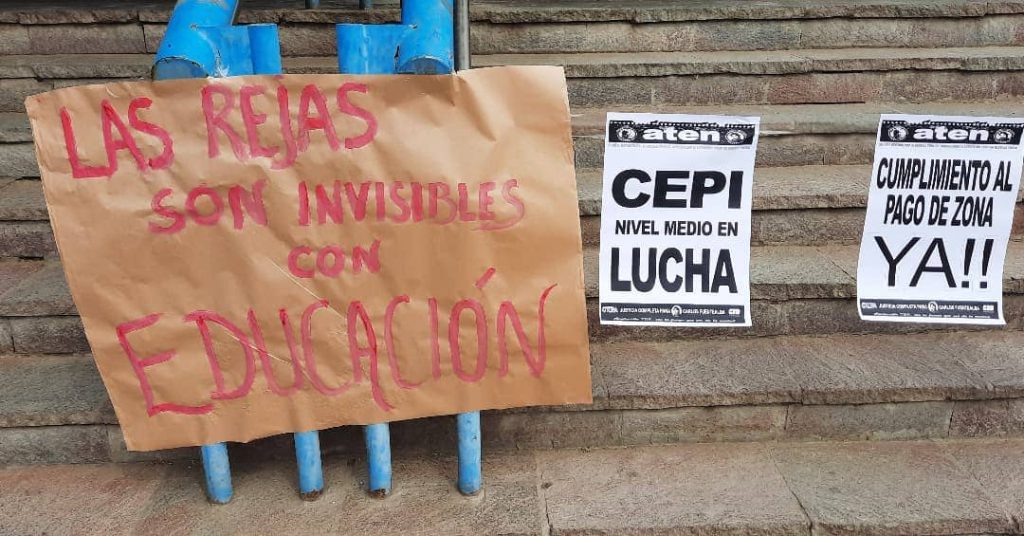 LAS REJAS
SON INVISIBLES
CON
EDUCACIÓN
aten
CEPI
NIVEL MEDIO EN
LUCHA
CTERA JUSTICIA COMPLETA PARA CARLOS FUENTEALBA CTA
aten
CUMPLIMIENTO AL
PAGO DE ZONA
YA!!
CTERA JUSTICIA COMPLETA PARA CARLOS FUENTEALBA CTA